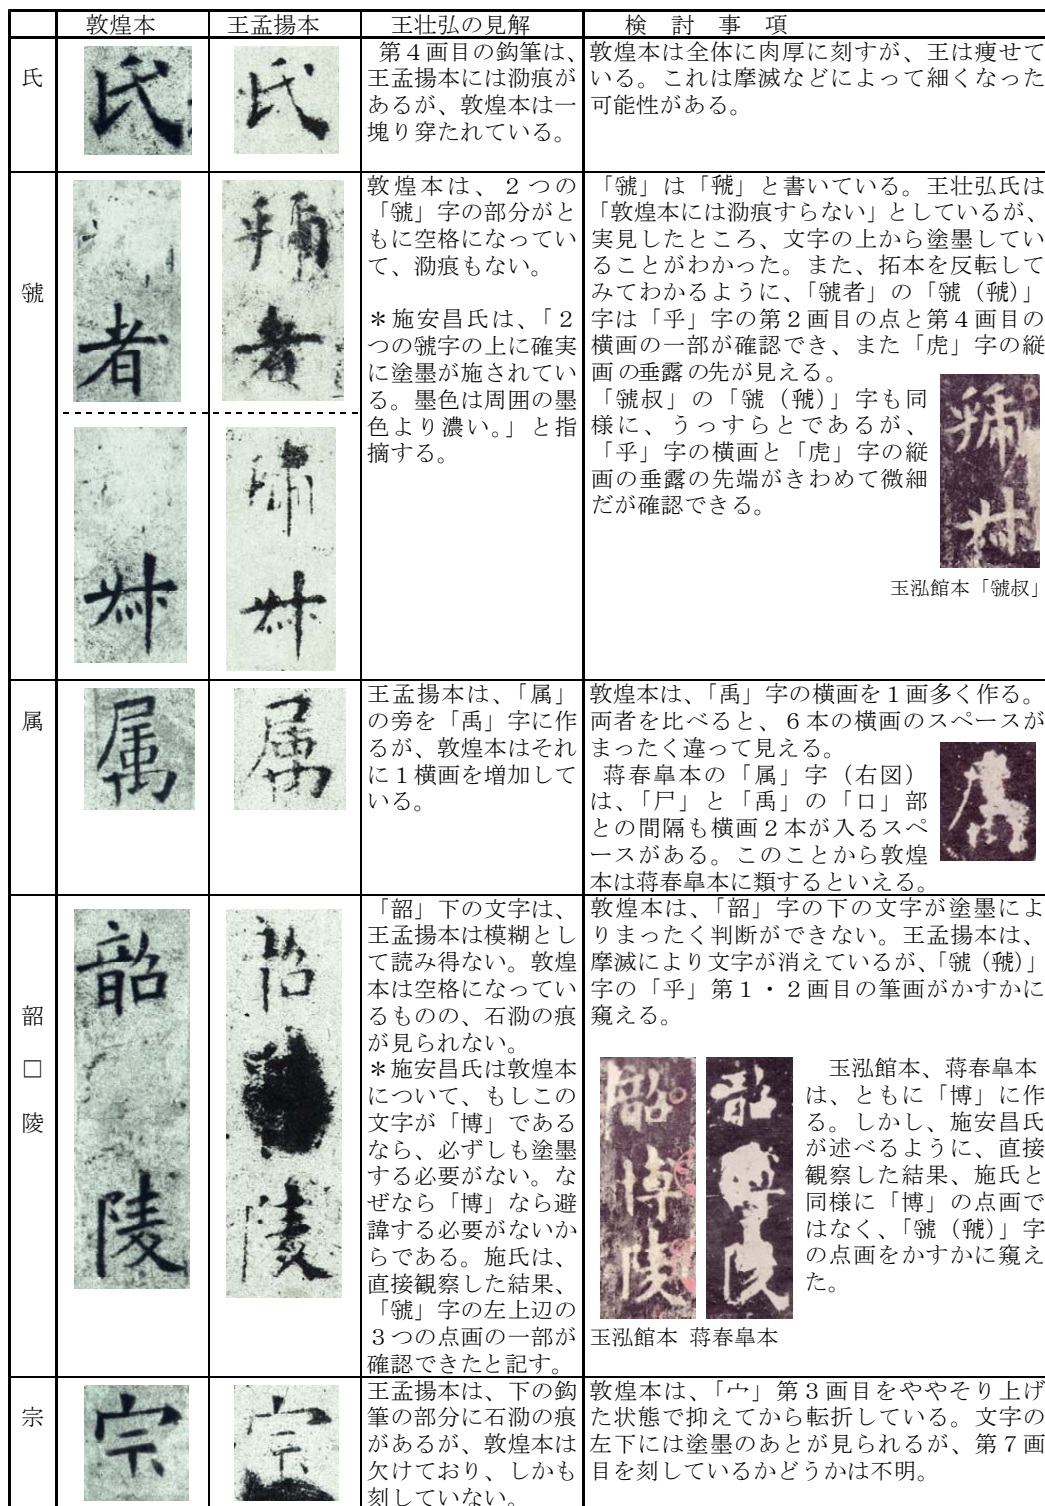 敦煌本
王孟揚本
王壮弘の見解
検討事項
氏
氏
氏
第４画目の鈎筆は、
王孟揚本には泐痕が
あるが、敦煌本は一
塊り穿たれている。
敦煌本は全体に肉厚に刻すが、王は痩せて
いる。これは摩滅などによって細くなった
可能性がある。
虢
者
虢
者
叔
虢
叔
敦煌本は、２つの
「虢」字の部分がと
もに空格になってい
て、泐痕もない。
＊施安昌氏は、「２
つの虢字の上に確実
に塗墨が施されてい
る。墨色は周囲の墨
色より濃い。」と指
摘する。
「虢」は「」と書いている。王壮弘氏は
「敦煌本には泐痕すらない」としているが、
実見したところ、文字の上から塗墨してい
ることがわかった。また、拓本を反転して
みてわかるように、「虢者」の「虢（）」
字は「乎」字の第２画目の点と第４画目の
横画の一部が確認でき、また「虎」字の縦
画の垂露の先が見える。
「虢叔」の「虢（）」字も同
様に、うっすらとであるが、
「乎」字の横画と「虎」字の縦
画の垂露の先端がきわめて微細
だが確認できる。
虢
叔
玉泓館本「虢叔」
属
属
属
王孟揚本は、「属」
の旁を「禹」字に作
るが、敦煌本はそれ
に１横画を増加して
いる。
敦煌本は、「禹」字の横画を１画多く作る。
両者を比べると、６本の横画のスペースが
まったく違って見える。
蒋春皐本の「属」字（右図）
は、「尸」と「禹」の「口」部
との間隔も横画２本が入るスペ
ースがある。このことから敦煌
本は蒋春皐本に類するといえる。
韶
□
陵
韶
陵
韶
陵
「韶」下の文字は、
王孟揚本は模糊とし
て読み得ない。敦煌
本は空格になってい
るものの、石泐の痕
が見られない。
＊施安昌氏は敦煌本
について、もしこの
文字が「博」である
なら、必ずしも塗墨
する必要がない。な
ぜなら「博」なら避
諱する必要がないか
らである。施氏は、
直接観察した結果、
「虢」字の左上辺の
３つの点画の一部が
確認できたと記す。
敦煌本は、「韶」字の下の文字が塗墨によ
りまったく判断ができない。王孟揚本は、
摩滅により文字が消えているが、「虢（）」
字の「乎」第１・２画目の筆画がかすかに
窺える。
韶
博
陵
韶
陵
玉泓館本、蒋春皐本
は、ともに「博」に作
る。しかし、施安昌氏
が述べるように、直接
観察した結果、施氏と
同様に「博」の点画で
はなく、「虢（）」字
の点画をかすかに窺え
た。
玉泓館本 蒋春皐本
宗
宗
宗
王孟揚本は、下の鈎
筆の部分に石泐の痕
があるが、敦煌本は
欠けており、しかも
刻していない。
敦煌本は、「宀」第３画目をややそり上げ
た状態で抑えてから転折している。文字の
左下には塗墨のあとが見られるが、第７画
目を刻しているかどうかは不明。